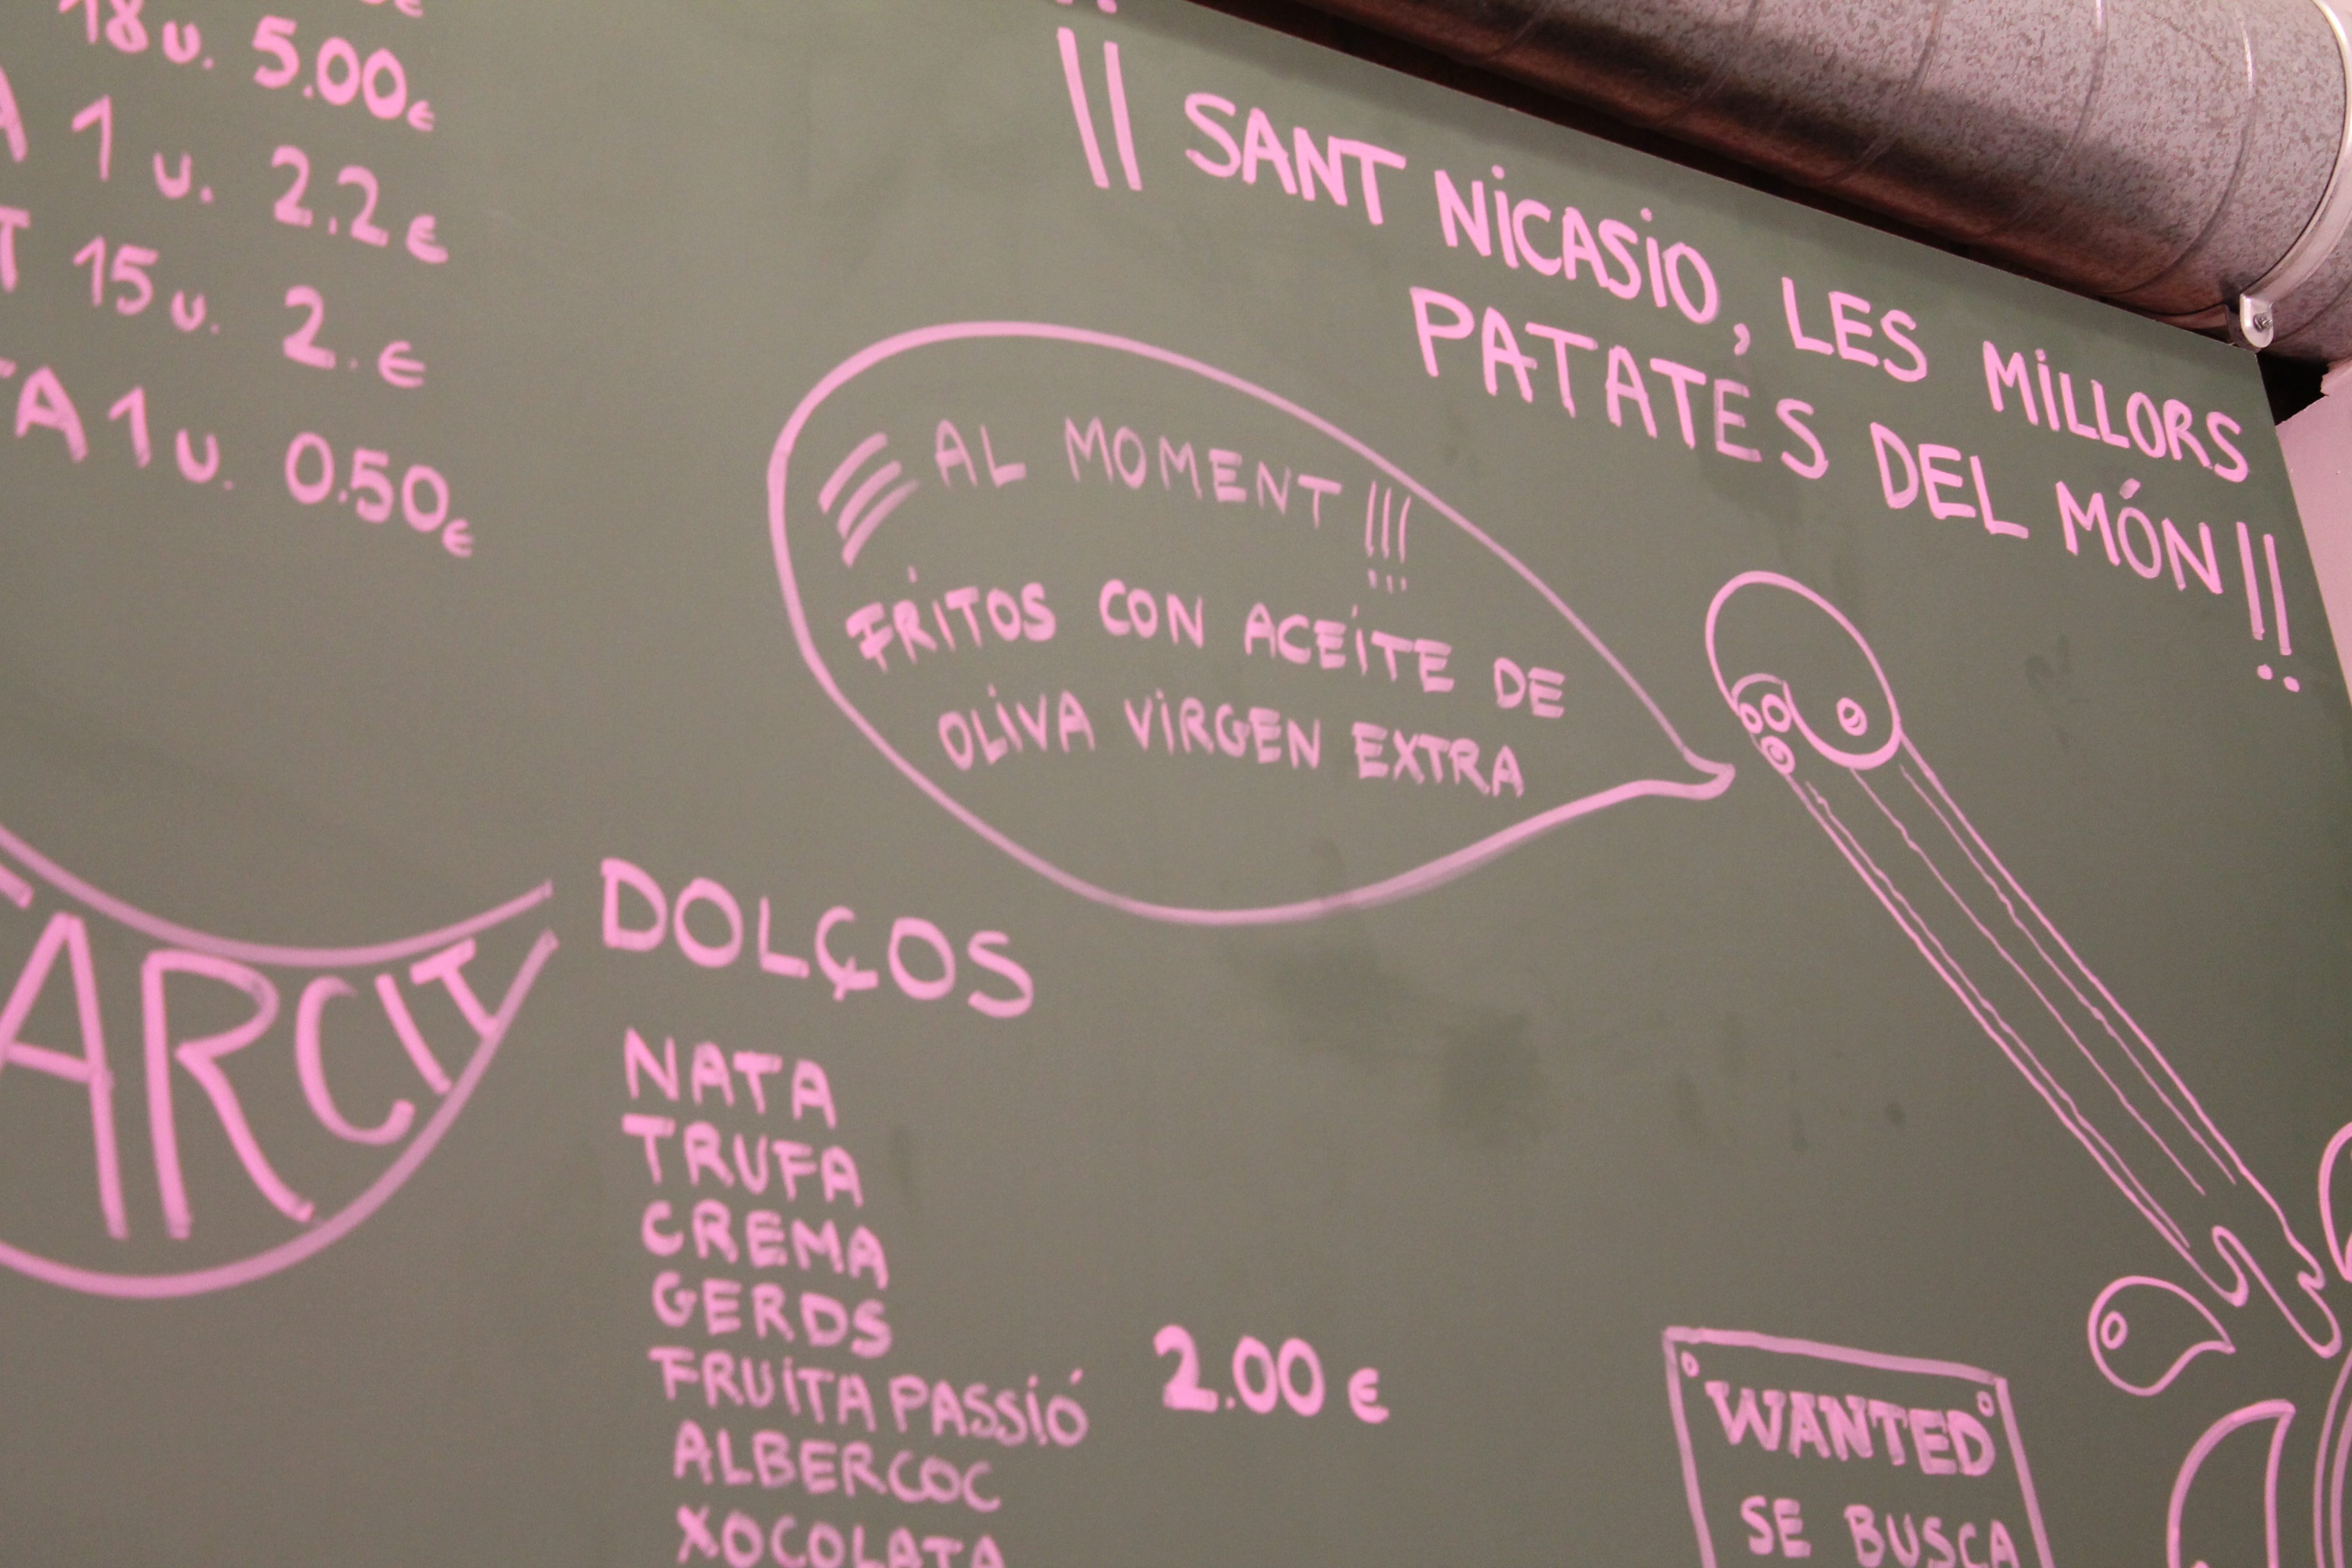 18 u. 5.00€
A 1 u. 2.2€
T 15 u. 2.€
TA 1 u. 0.50€
!! SANT NICASIO, LES MILLORS
PATATES DEL MÓN!!
AL MOMENT!!!
FRITOS CON ACEITE DE
OLIVA VIRGEN EXTRA
FARCIT
DOLÇOS
NATA
TRUFA
CREMA
GERDS
FRUITA PASSIÓ 2.00 €
ALBERCOC
XOCOLATA
WANTED
SE BUSCA